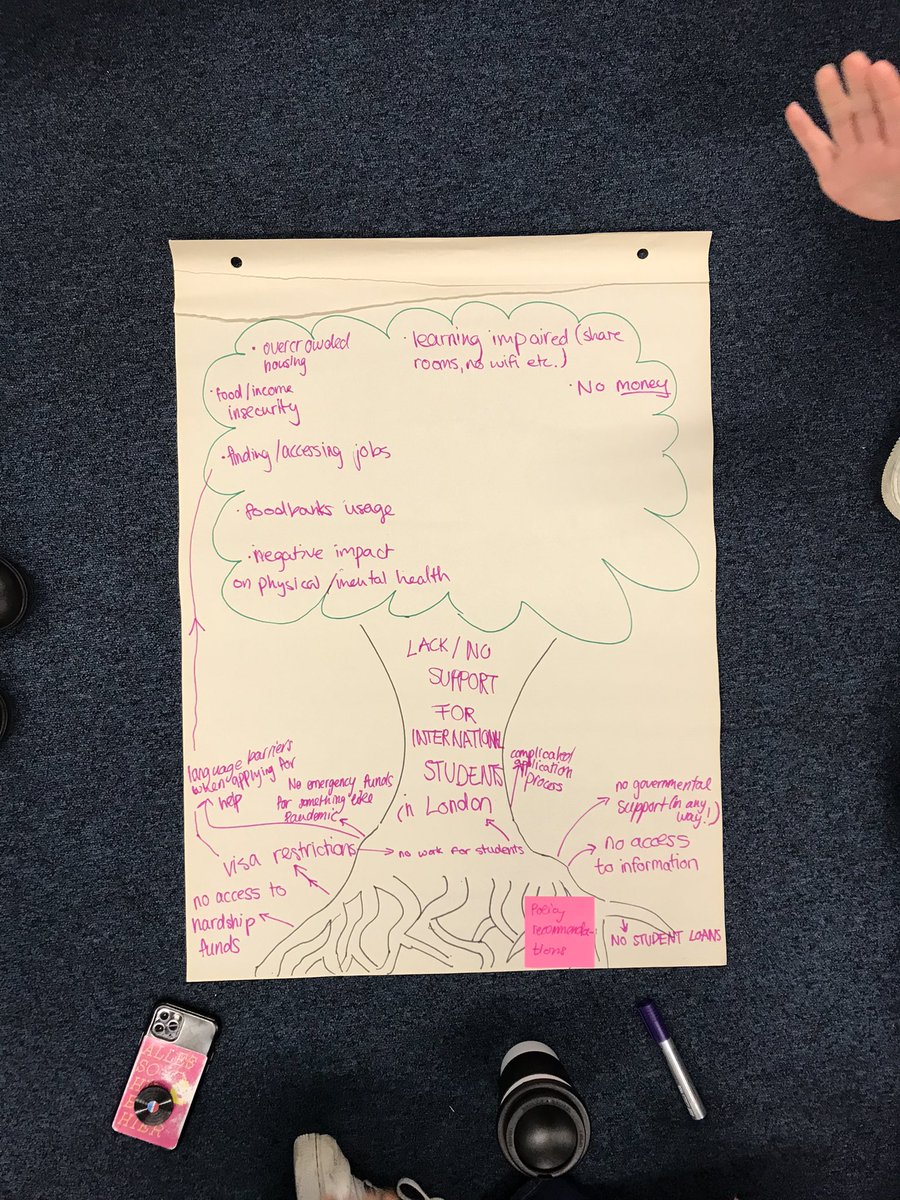 • overcrowded
housing
• learning impaired (share
rooms, no wifi etc.)
• No money
• food/income
insecurity
• finding/accessing jobs
• foodbanks usage
• negative impact
on physical/mental health
LACK/NO
SUPPORT
FOR
INTERNATIONAL
STUDENTS
in London
complicated
application
process
language barriers
when applying for
help
No emergency funds
for something like
Pandemic
no governmental
support (in any
way!)
visa restrictions
no work for students
no access
to information
no access to
hardship
funds
Policy
recommenda-
tions
NO STUDENT LOANS
ALLES
HIER